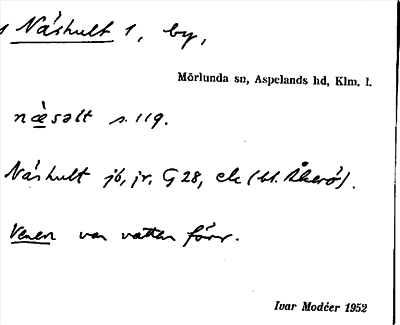 Näshult 1, by,
Mörlunda sn, Aspelands hd, Klm. l.
næ̀səlt s. 119.
Näshult jb, jr, G 28, ek (bl. Åkerö).
Venen var vatten förr.
Ivar Modéer 1952